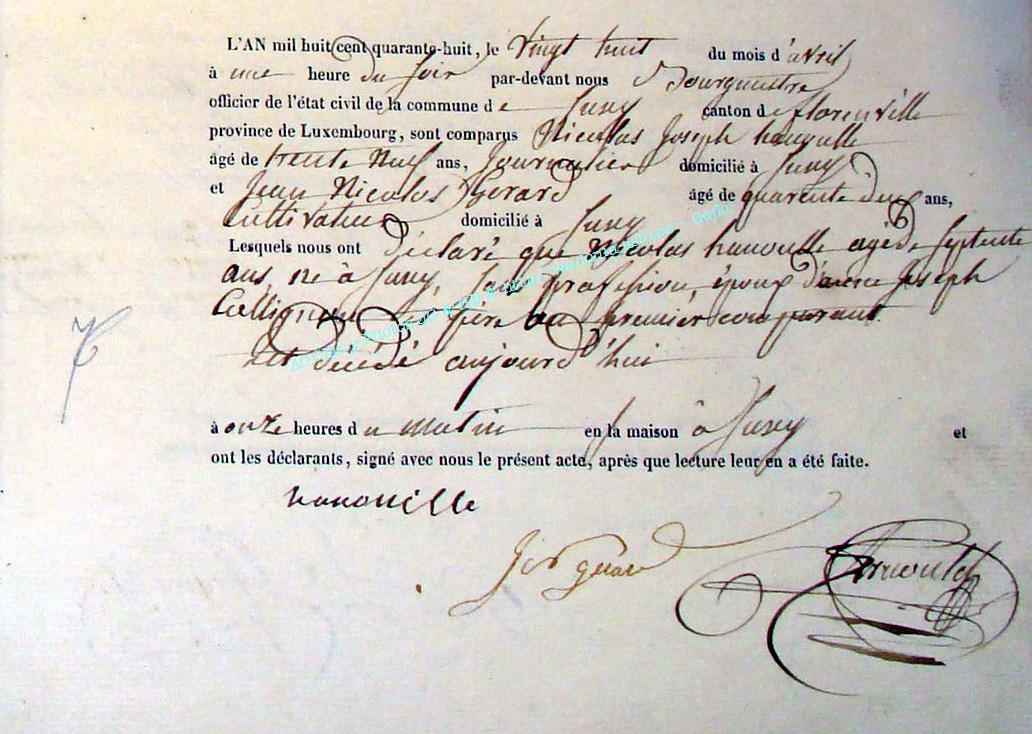 L'AN mil huit cent quarante-huit, le Vingt huit du mois d'avril
à une heure du soir par-devant nous Bourgmestre
officier de l'état civil de la commune de Izel canton de florenville
province de Luxembourg, sont comparus Nicolas Joseph
âgé de trente Neuf ans, Journalier domicilié à
et Jean Nicolas âgé de quarente deux ans,
Cultivateur domicilié à
Lesquels nous ont déclaré que Nicolas agé de septente
ans, né à sans profession, époux d'anne Joseph
Collignon père du premier comparant
est décédé aujourd'hui
à onze heures du matin en la maison à et
ont les déclarants, signé avec nous le présent acte, après que lecture leur en a été faite.